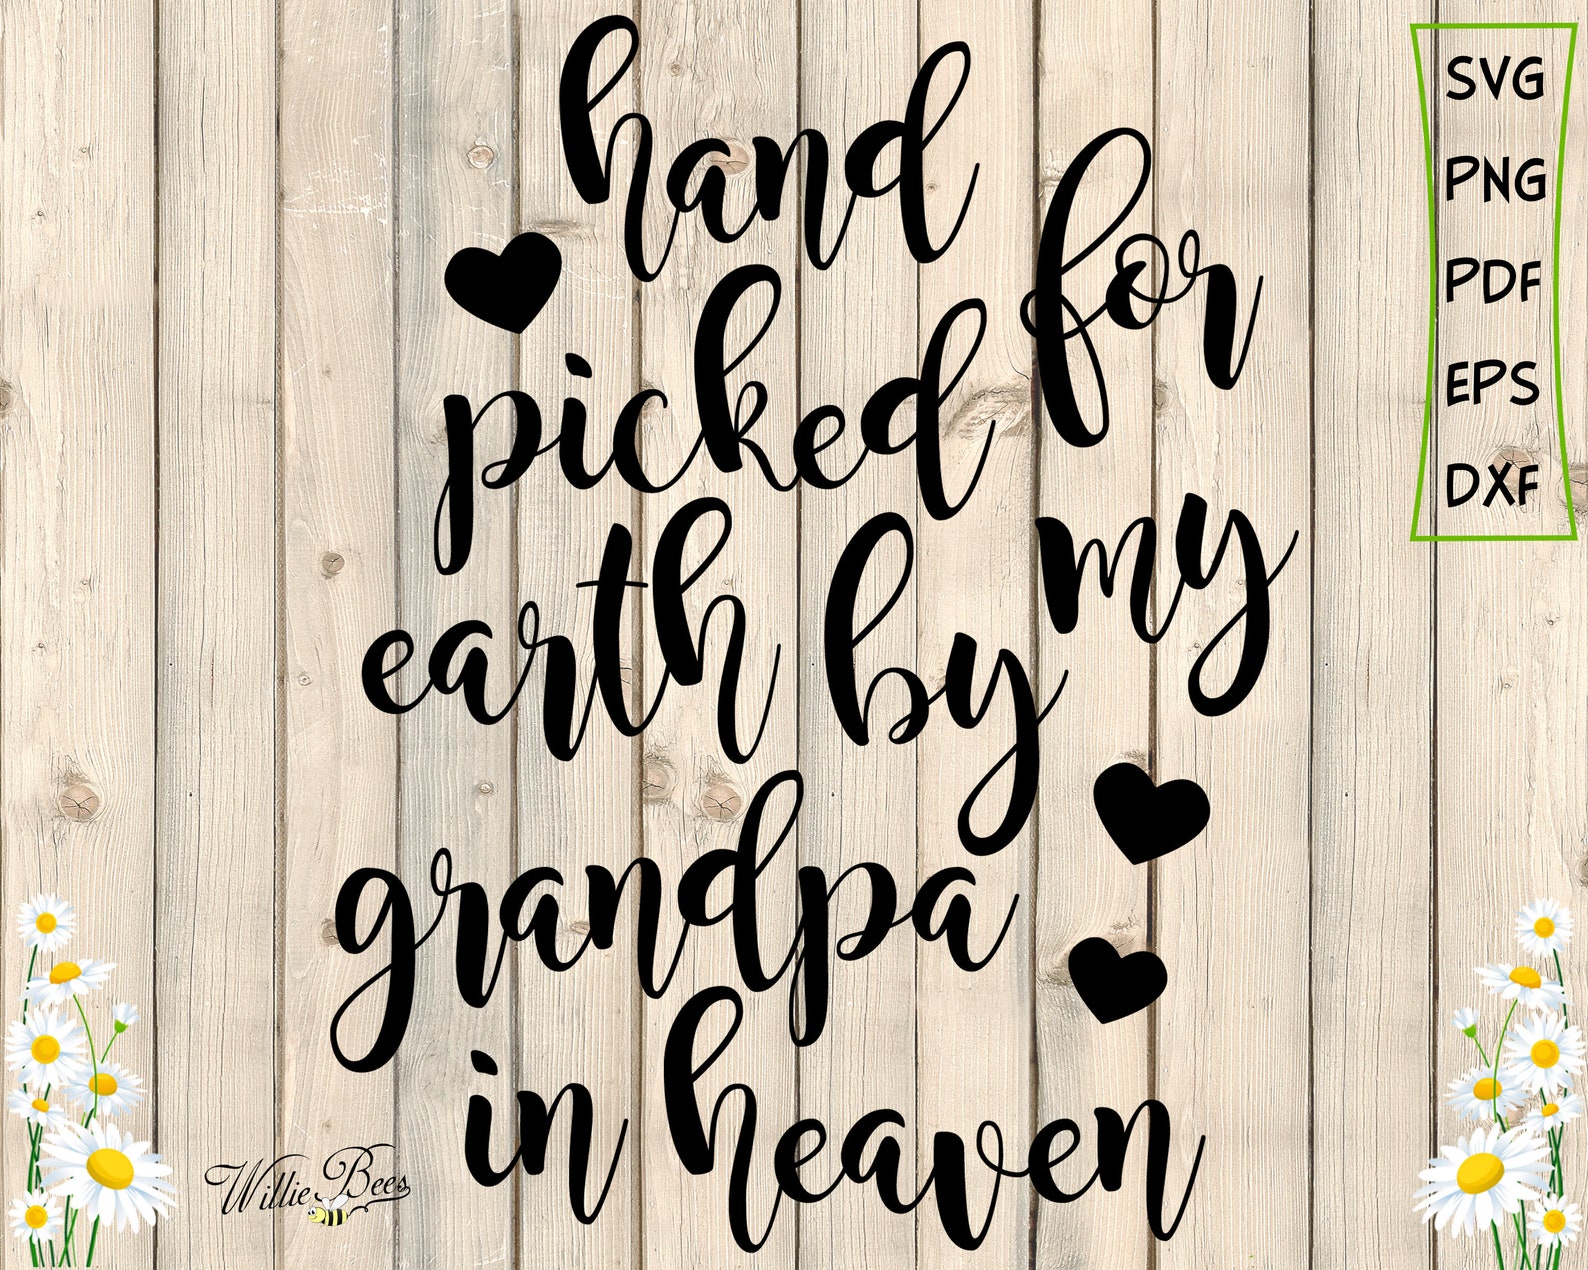 hand
picked for
earth by my
grandpa
in heaven
SVG
PNG
PDF
EPS
DXF
Willie Bees